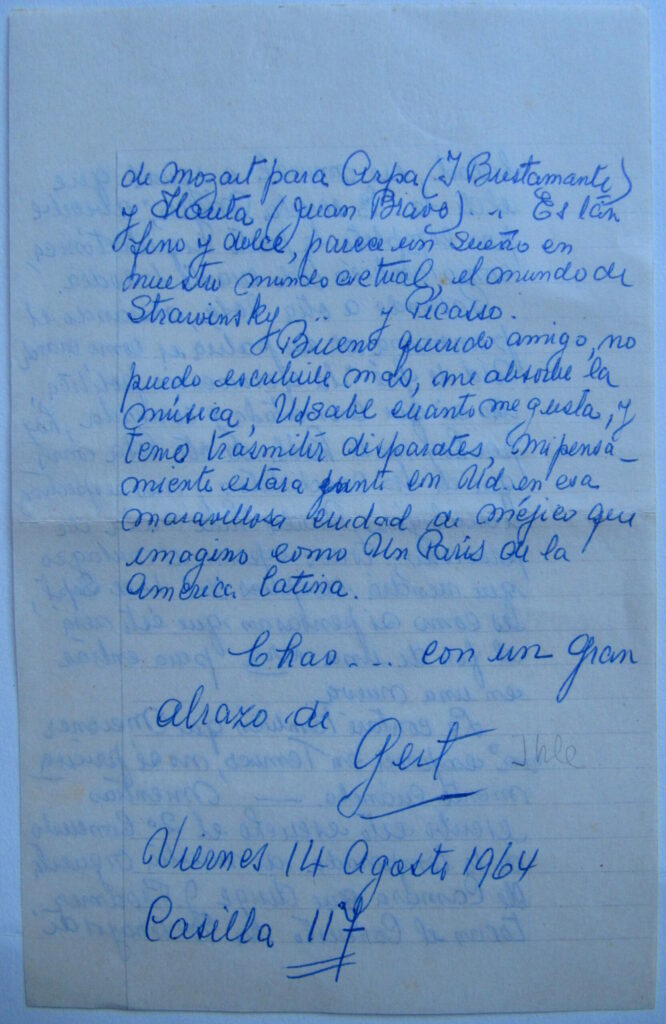 de Mozart para Arpa (J Bustamante)
y Flauta (Juan Bravo). . Es tan
fino y dulce, parece un sueño en
nuestro mundo actual, el mundo de
Strawinsky .. y Picasso.
Bueno querido amigo, no
puedo escribirle mas, me absorbe la
música, Ud sabe cuanto me gusta, y
temo trasmitir disparates. Mi pensa-
miento estara junto en Ud. en esa
maravillosa ciudad de Méjico que
imagino como Un París de la
America Latina.
Chao ... con un gran
abrazo de
Gert Ihle
Viernes 14 Agosto 1964
Casilla 117